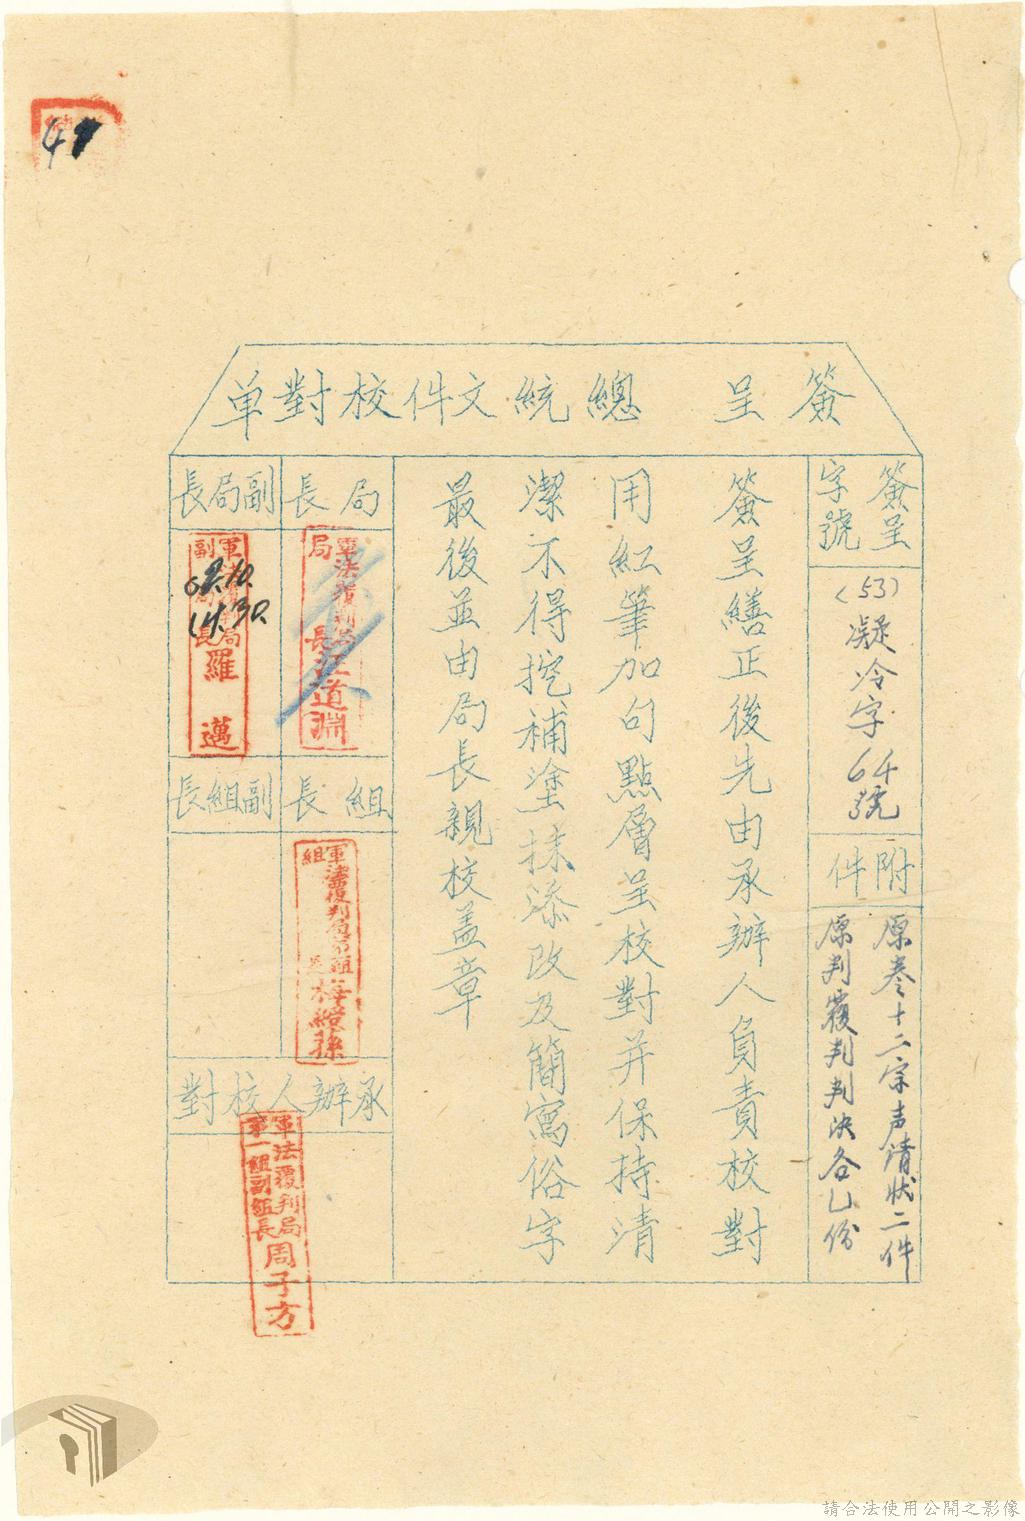 簽呈　總統文件校對単
簽呈
字號
(53)凝冷字64號
附件
原卷十二宗声請狀二件
原判覆判判决各乙份
簽呈繕正後先由承辦人負責校對
用紅筆加句點層呈校對并保持清
潔不得挖補塗抹添改及簡寫俗字
最後並由局長親校盖章
局長
軍法覆判局
局長江道淵
副局長
軍法覆判局
副局長羅邁
14.30.
組長
組長梅綬蓀
副組長
承辦人校對
軍法覆判局
第一組副組長周子方
請合法使用公開之影像